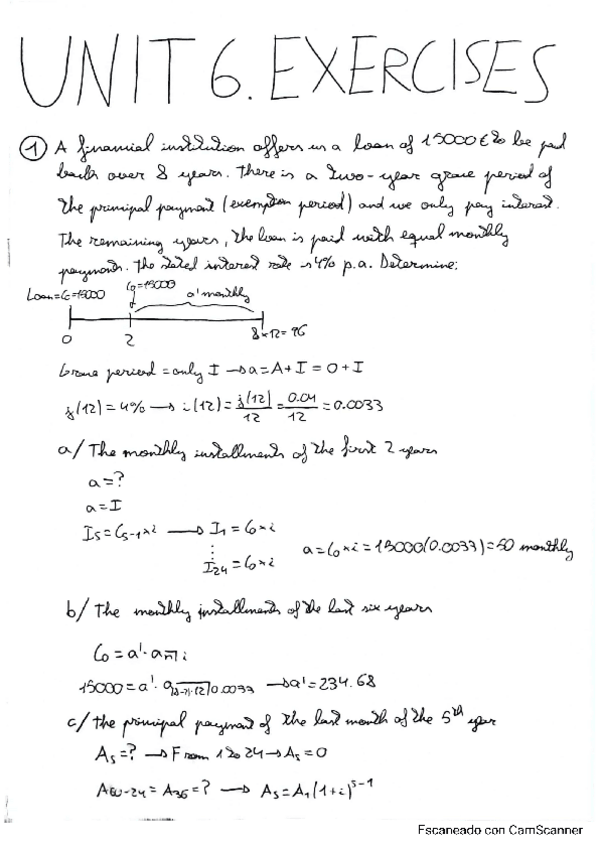 UNIT 6. EXERCISES
① A financial institution offers us a loan of 15000€ to be paid
back over 8 years. There is a two-year grace period of
the principal payment (exemption period) and we only pay interest.
The remaining years, the loan is paid with equal monthly
payments. The stated interest rate is 4% p.a. Determine:
Loan=C₀=15000 C₀=15000 a' monthly
0 2 8×12=96
Grace period = only I → a = A + I = 0 + I
j(12) = 4% → i(12) = j(12)/12 = 0.04/12 = 0.0033
a/ The monthly installments of the first 2 years
a = ?
a = I
Is = Cs-1 × i → I₁ = C₀ × i
⋮
I₂₄ = C₀ × i a = C₀ × i = 15000(0.0033) = 50 monthly
b/ The monthly installments of the last six years
C₀ = a' · a n̅| i
15000 = a' · a (8-2)·12| 0.0033 → a' = 234.68
c/ the principal payment of the last month of the 5th year
As = ? → From 1 to 24 → As = 0
A60-24 = A36 = ? → As = A₁(1+i)^s-1
Escaneado con CamScanner